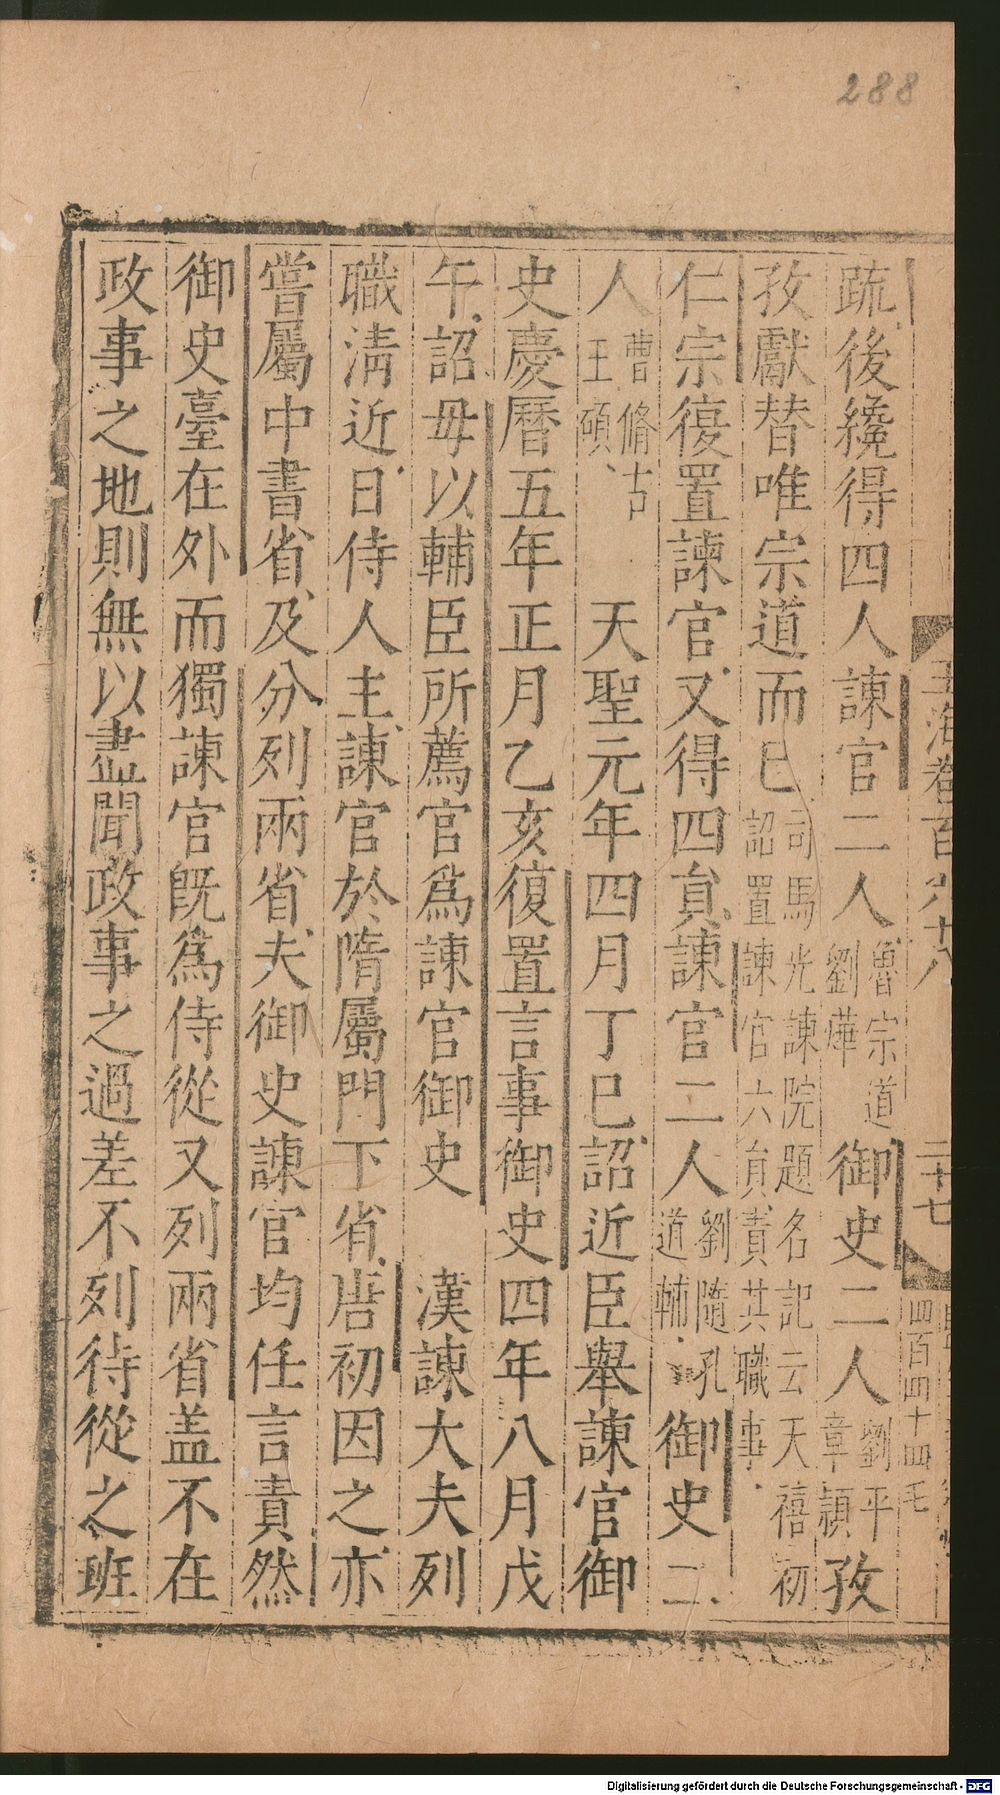 288
玉海卷百八十八
二十七
四百四十四毛
疏後纔得四人諫官二人魯宗道劉燁御史二人劉平章頻孜
孜獻替唯宗道而已司馬光諫院題名記云天禧初詔置諫官六員責其職事
仁宗復置諫官又得四員諫官二人劉隨孔道輔御史二
人曹脩古王碩 天聖元年四月丁巳詔近臣舉諫官御
史慶曆五年正月乙亥復置言事御史四年八月戊
午詔毋以輔臣所薦官爲諫官御史 漢諫大夫列
職清近日侍人主諫官於隋屬門下省唐初因之亦
嘗屬中書省及分列兩省夫御史諫官均任言責然
御史臺在外而獨諫官旣爲侍從又列兩省盖不在
政事之地則無以盡聞政事之過差不列待從之班
Digitalisierung gefördert durch die Deutsche Forschungsgemeinschaft - DFG